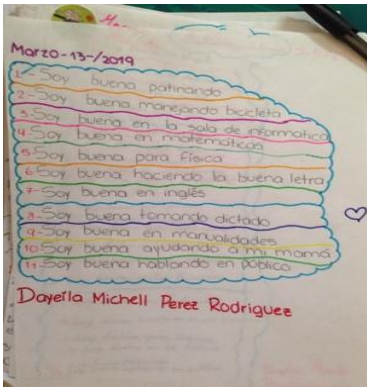 Marzo-13-/2019
1-Soy buena patinando
2-Soy buena manejando bicicleta
3-Soy buena en la sala de informatica
4 Soy buena en matemáticas
5-Soy buena para Física
6-Soy buena haciendo la buena letra
7-Soy buena en inglés
8-Soy buena tomando dictado
9-Soy buena en manualidades
10-Soy buena ayudando a mi mamá
11-Soy buena hablando en público
Dayeila Michell Perez Rodriguez